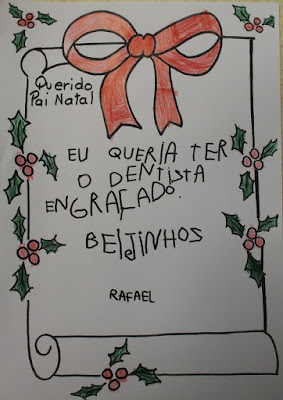 Querido
Pai Natal
EU QUERIA TER
O DENTISTA
ENGRAÇADO.
BEIJINHOS
RAFAEL